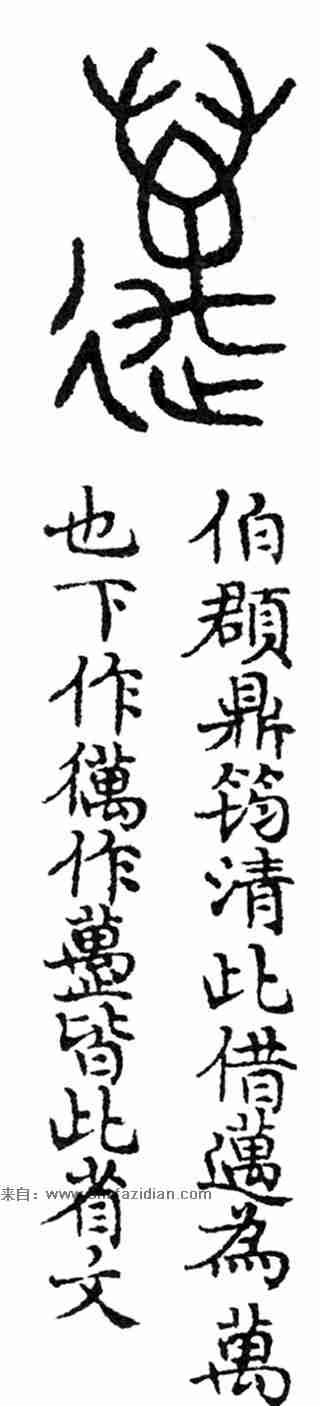 伯頵鼎筠清此借邁為萬
也下作𢕪作䘍皆此省文
来自：www.shufazidian.com